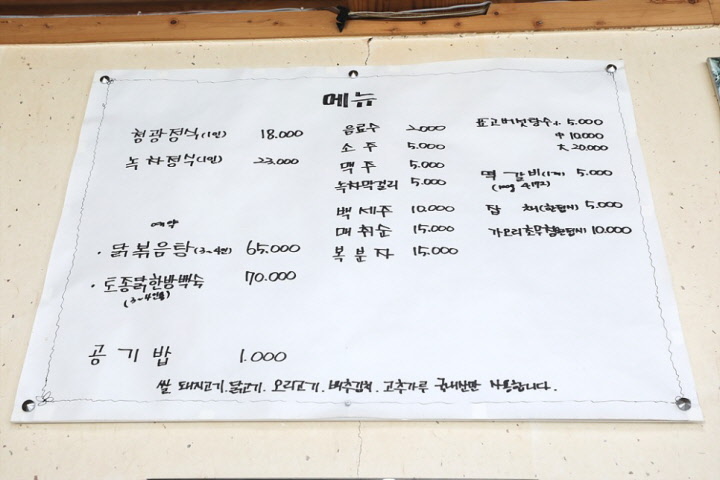 메뉴
청광정식(1인) 18.000
녹차정식(1인) 23.000
예약
· 닭볶음탕(3~4인) 65.000
· 토종닭한방백숙 70.000
(3~4인용)
공기밥 1.000
음료수 2.000
소주 5.000
맥주 5.000
녹차막걸리 5.000
백세주 10.000
매취순 15.000
복분자 15.000
표고버섯탕수 小 5.000
中 10.000
大 20.000
떡갈비(1개) 5.000
잡채(한접시) 5.000
가오리초무침(한접시) 10.000
쌀. 돼지고기. 닭고기. 오리고기. 배추김치. 고추가루 국내산만 사용합니다.